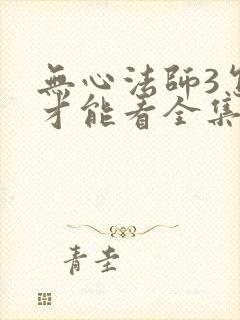 無心法師3
才能看全集
青圭